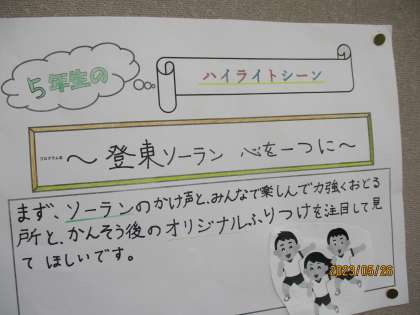 5年生の
ハイライトシーン
プログラム名
～登東ソーラン 心を一つに～
まず、ソーランのかけ声と、みんなで楽しんで力強くおどる
所と、かんそう後のオリジナルふりつけを注目して見
て ほしいです。
2023/05/26